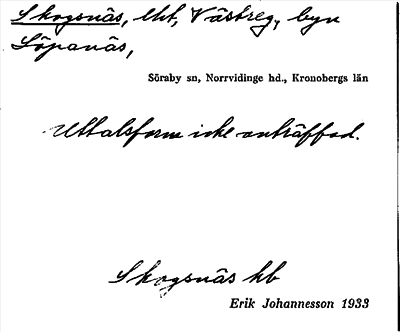 Skogsnäs, lht, Västreg, byn
Löpanäs,
Söraby sn, Norrvidinge hd., Kronobergs län
Uttalsform icke anträffad.
Skogsnäs hb
Erik Johannesson 1933